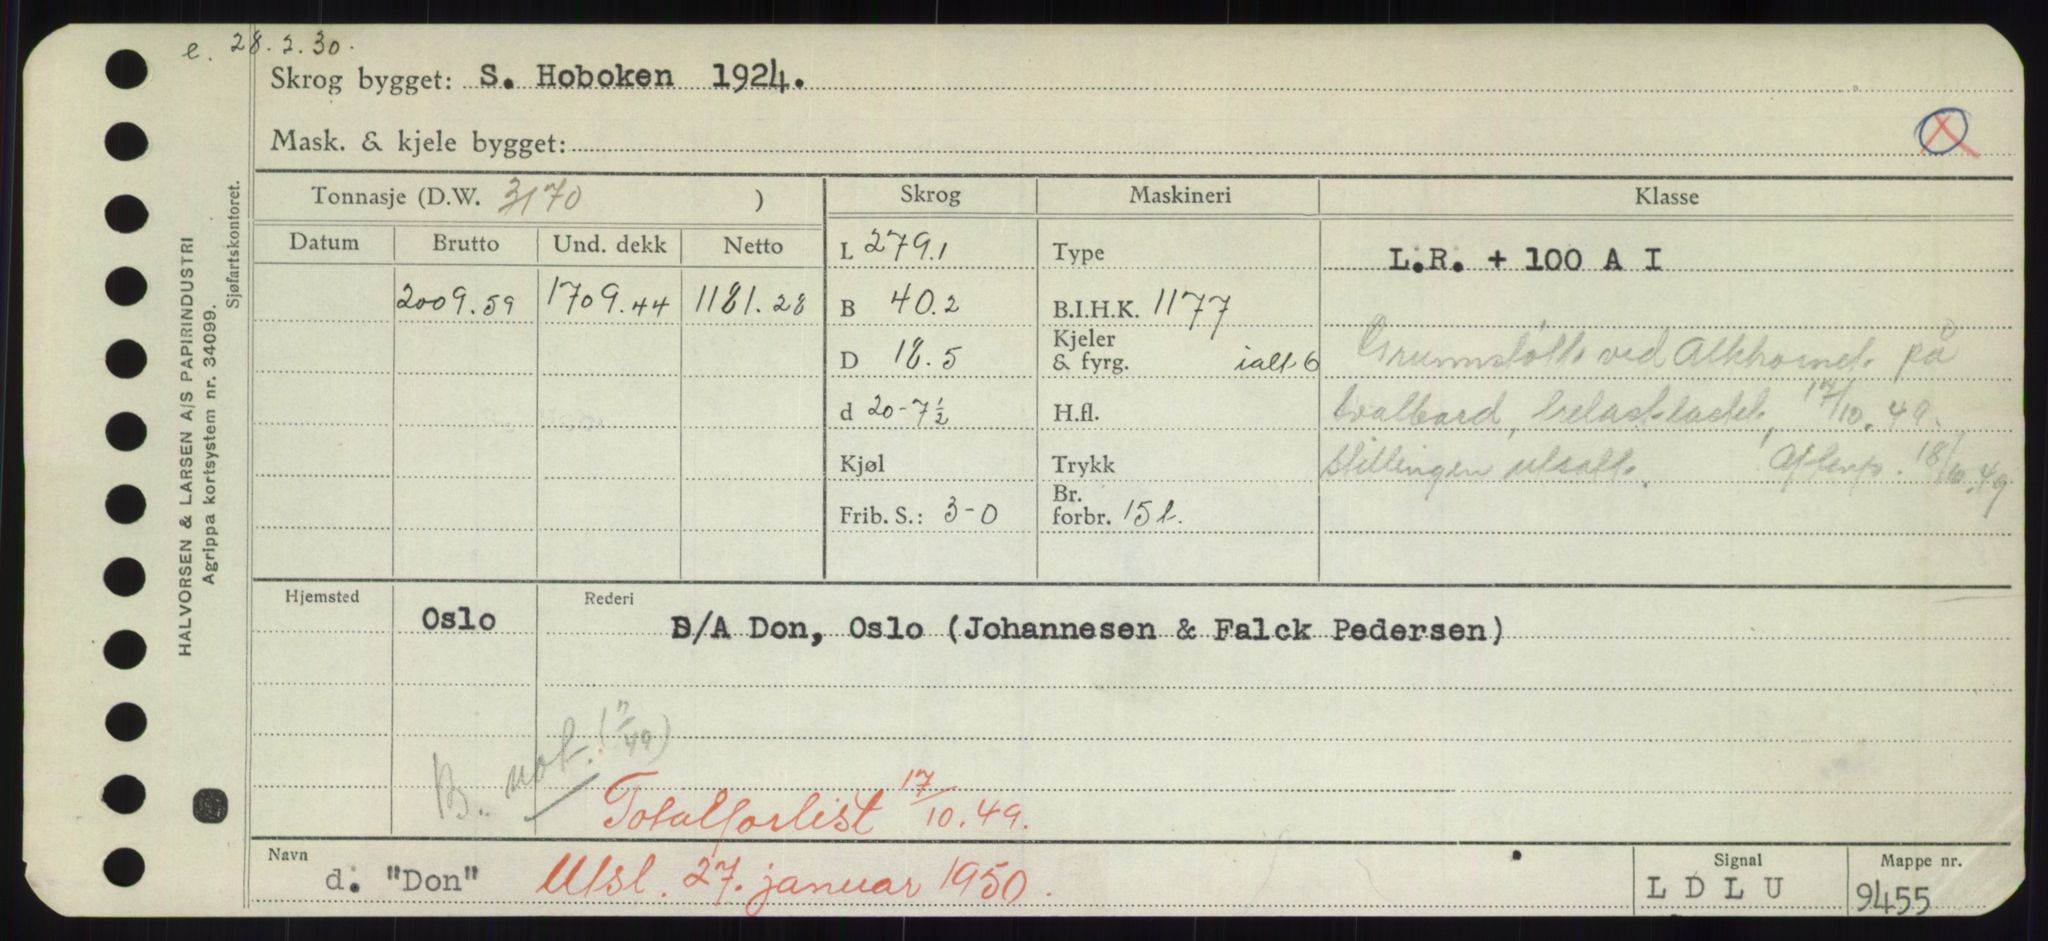 e. 28.2.30.
Skrog bygget: S. Hoboken 1924.
Mask. & kjele bygget:
HALVORSEN & LARSEN A/S PAPIRINDUSTRI
Agrippa kortsystem nr. 34099.
Sjøfartskontoret.
Tonnasje (D.W. 3170 ) Skrog Maskineri Klasse
Datum Brutto Und. dekk Netto L 279.1 Type L.R. + 100 A I
2009.59 1709.44 1181.28 B 40.2 B.I.H.K. 1177
D 18.5 Kjeler & fyrg. ialt 6 Grunnstøtt ved Alkhornet på
d 20-7½ H.fl. Svalbard, 17/10.49.
Kjøl Trykk Stillingen utsatt. Aftenp. 18/10.49
Frib. S.: 3-0 Br. forbr. 15 t.
Hjemsted Rederi
Oslo B/A Don, Oslo (Johannesen & Falck Pedersen)
B. not.
Totalforlist 17/10.49.
Navn Signal Mappe nr.
d. "Don" Utsl. 27. januar 1950. L D L U 9455